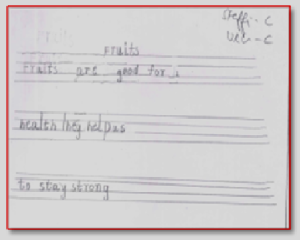 Steffi - C
Uki - C
Fruits
Fruits are good for
health they help us
to stay strong